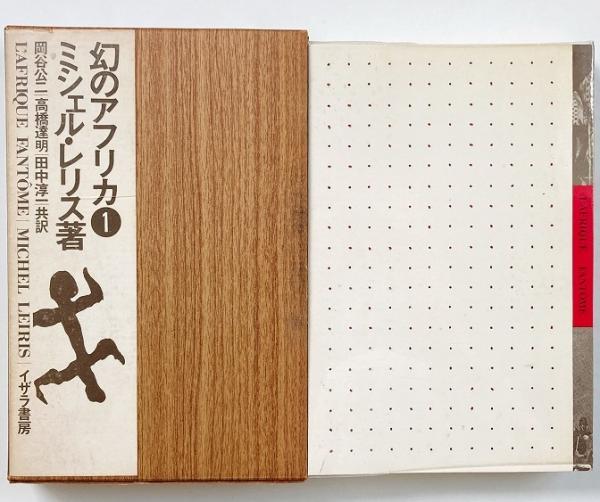 幻のアフリカ❶
ミシェル・レリス著
岡谷公二｜高橋達明｜田中淳一共訳
L'AFRIQUE FANTÔME｜MICHEL LEIRIS｜イザラ書房
L'AFRIQUE FANTÔME